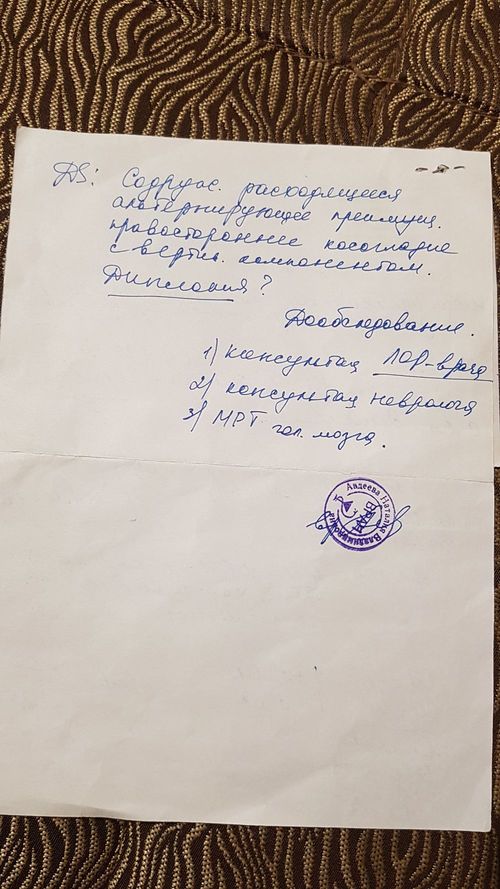 DS: Содруж. расходящееся
альтернирующее преимущ.
правостороннее косоглазие
с вертик. компонентом.
Диплопия?
Дообследование.
1) консультац ЛОР-врача
2) консультац невролога
3) МРТ гол. мозга.
Авдеева Наталия Владимировна
ВРАЧ